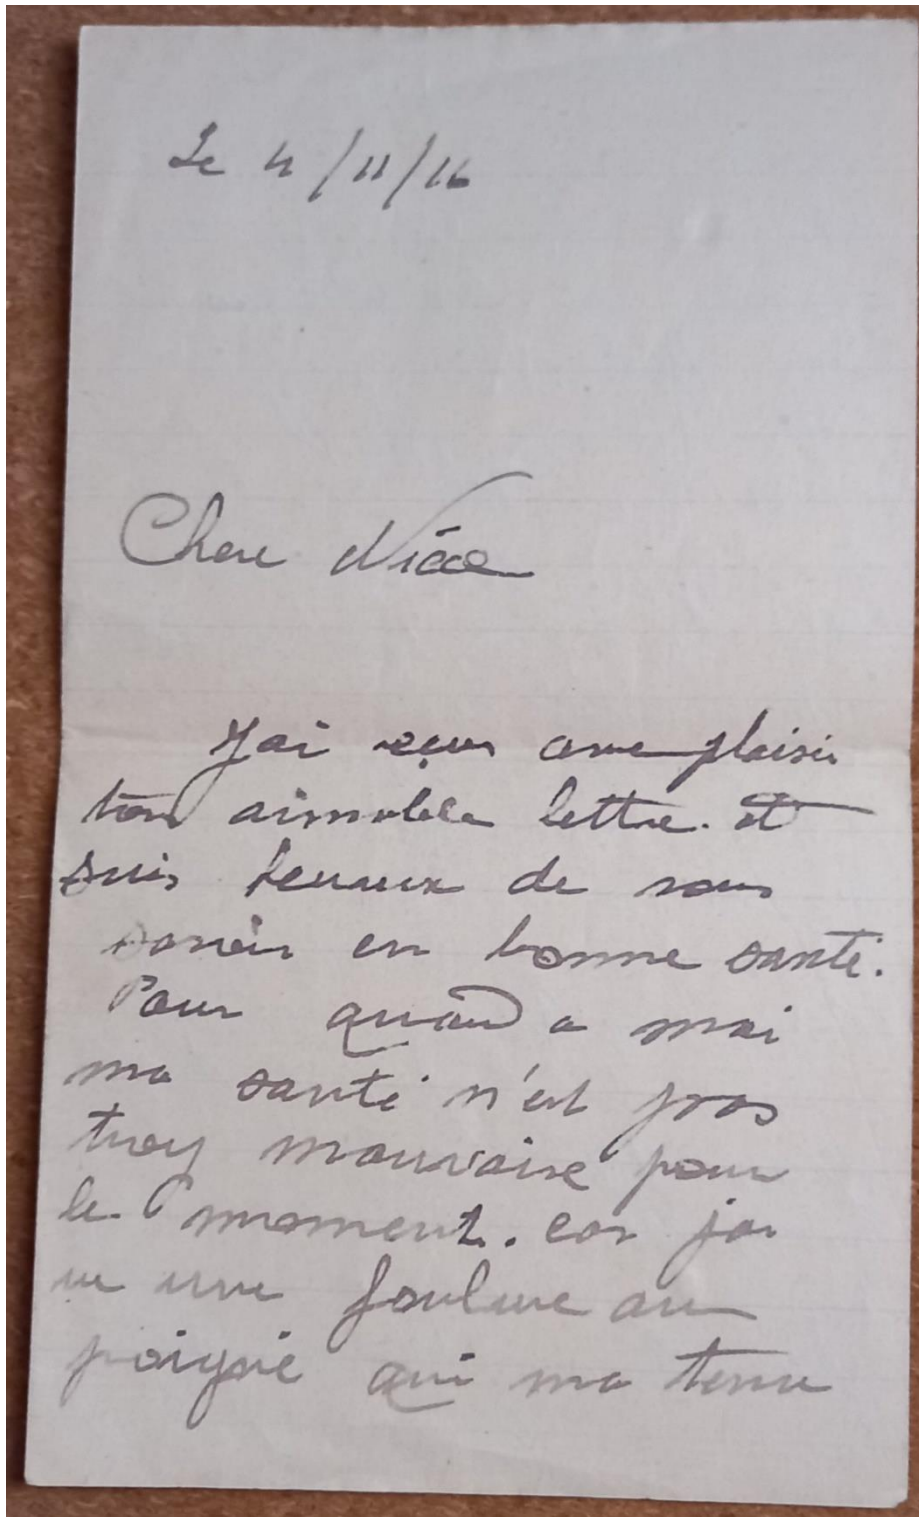 Le 4/11/16
Chere Nièce
J'ai reçus avec plaisir
ton aimable lettre. et
suis heureux de vous
savoir en bonne santé.
Pour quand a moi
ma santé n'est pas
trop mauvaise pour
le moment. car jai
u une foulure au
poignie qui ma tenu